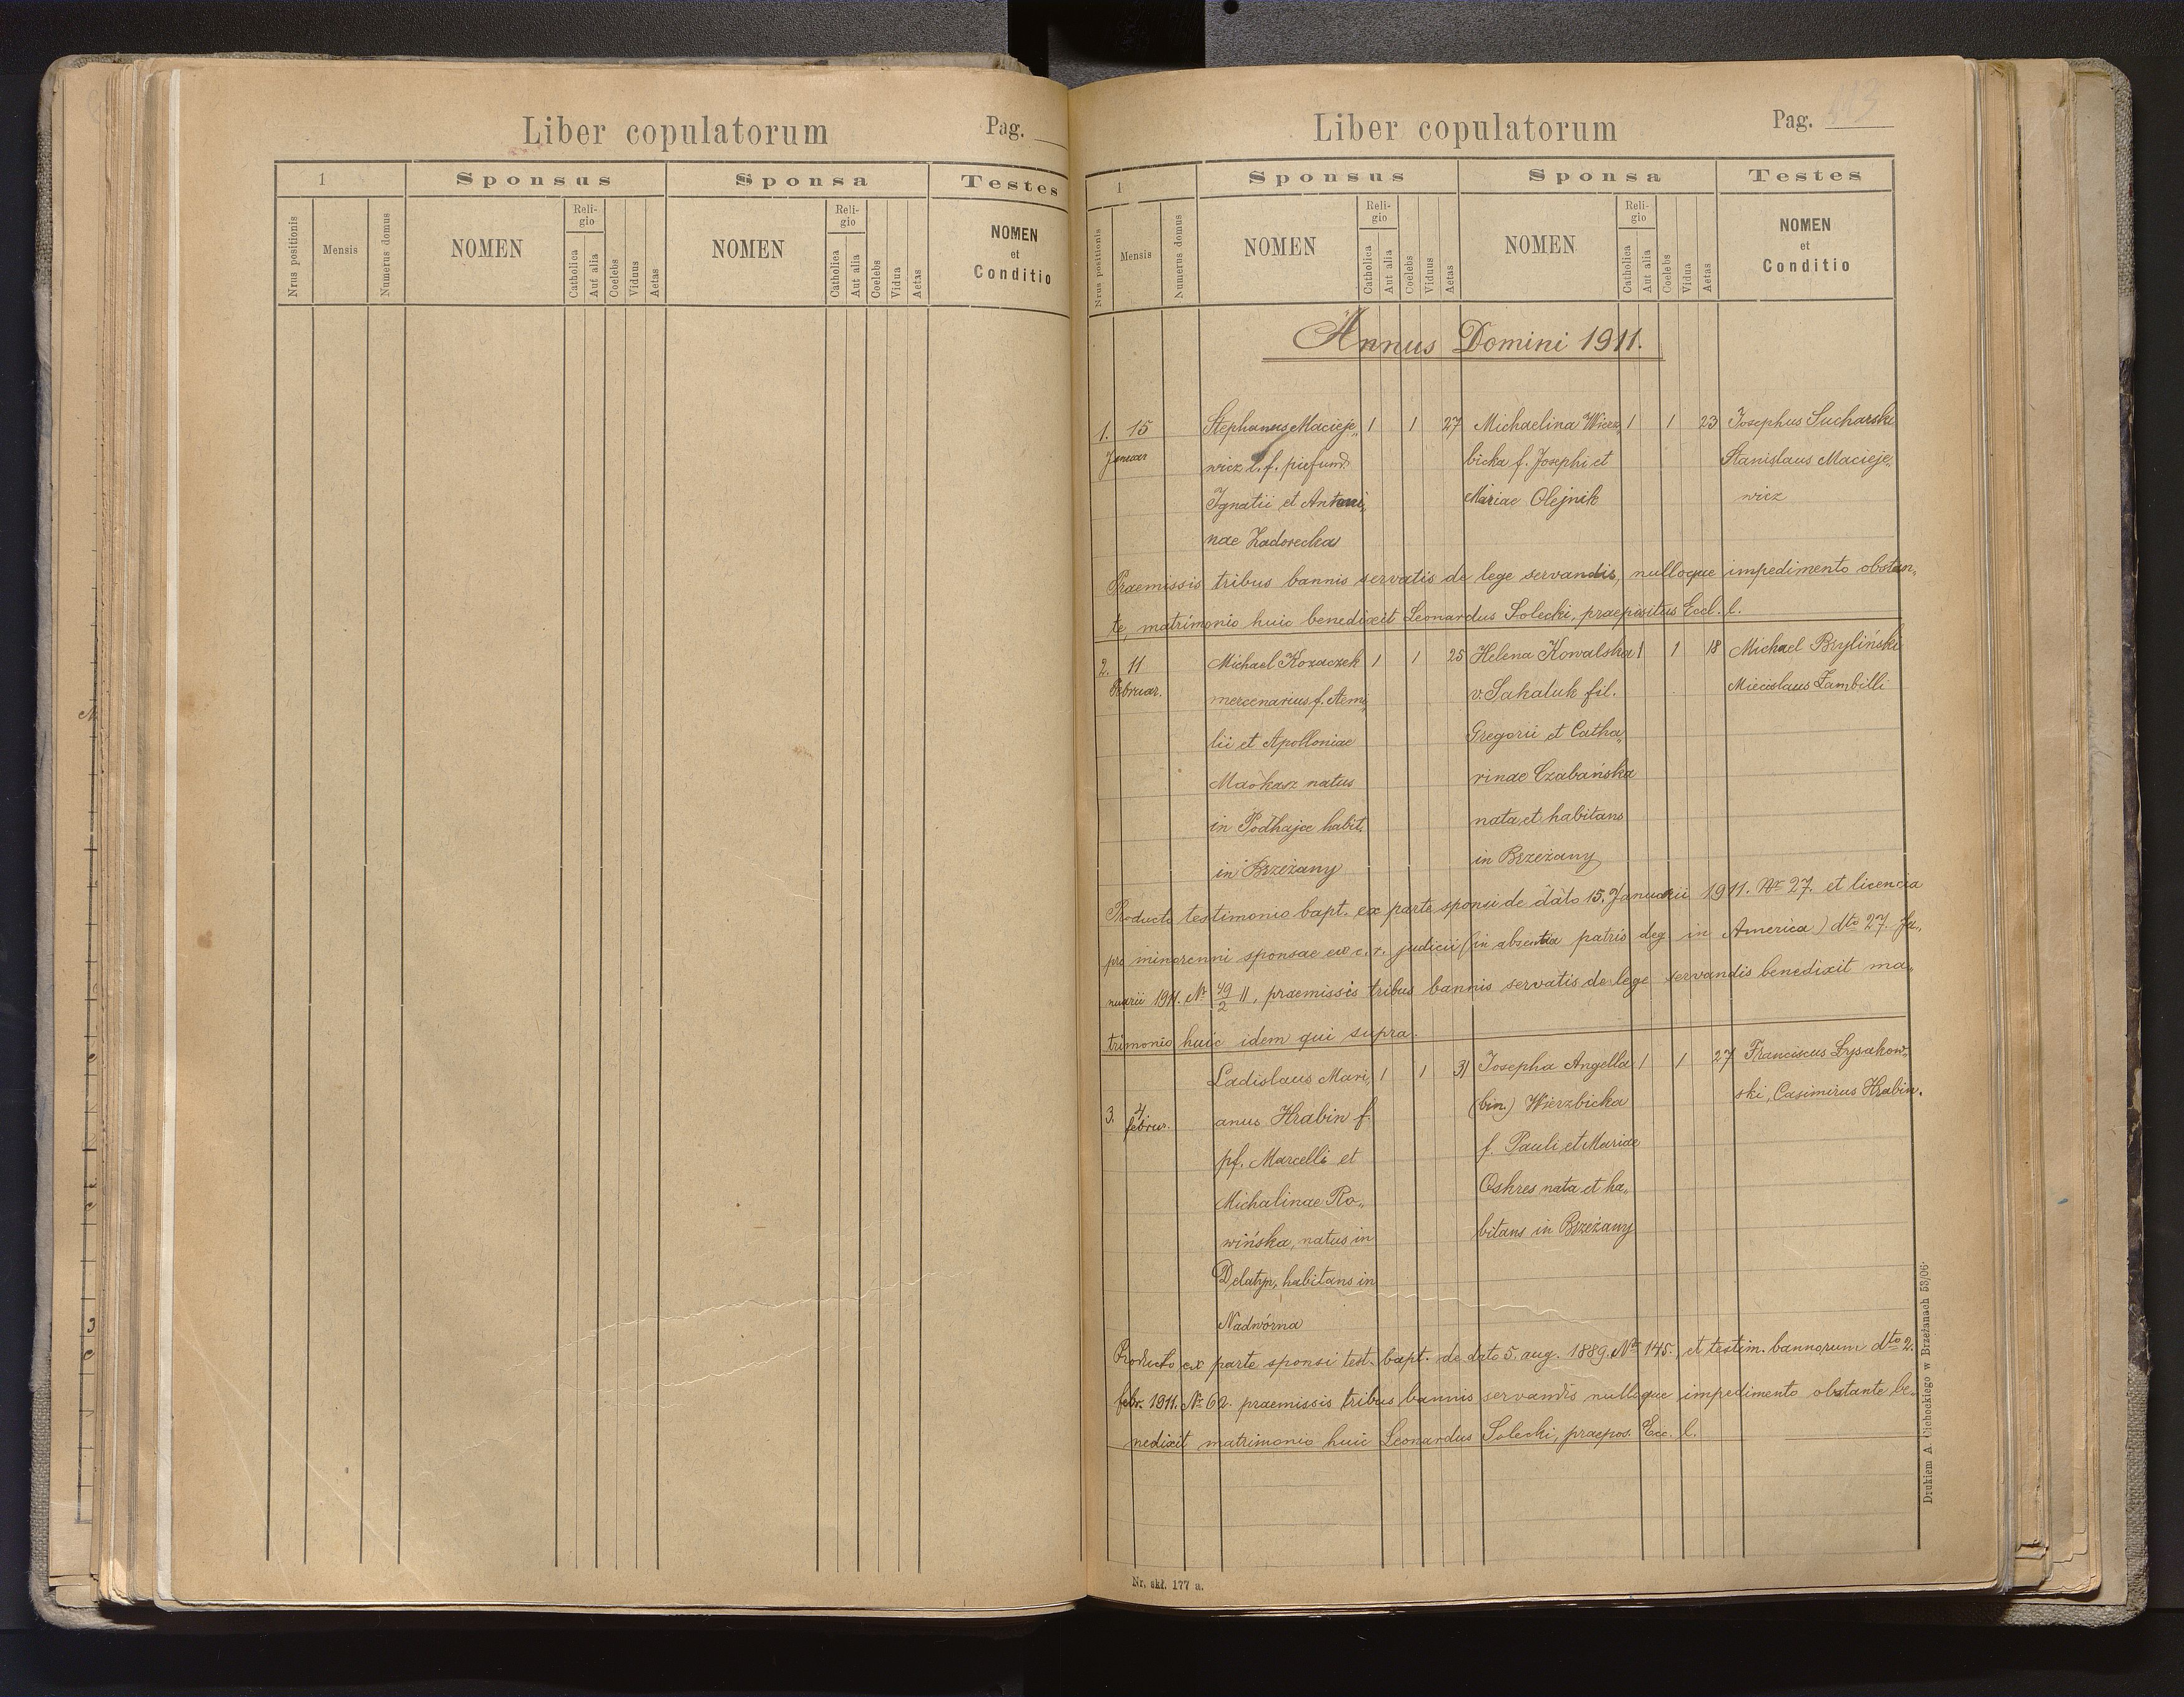 Liber copulatorum
Pag.
1
Sponsus
Sponsa
Testes
Nrus positionis
Mensis
Numerus domus
NOMEN
Reli-
gio
Catholica
Aut alia
Coelebs
Viduus
Aetas
NOMEN
Reli-
gio
Catholica
Aut alia
Coelebs
Vidua
Aetas
NOMEN
et
Conditio
Liber copulatorum
Pag. 113
1
Sponsus
Sponsa
Testes
Nrus positionis
Mensis
Numerus domus
NOMEN
Reli-
gio
Catholica
Aut alia
Coelebs
Viduus
Aetas
NOMEN
Reli-
gio
Catholica
Aut alia
Coelebs
Vidua
Aetas
NOMEN
et
Conditio
Annus Domini 1911.
1. 15 Stephanus Macieje„ 1 1 27 Michaelina Wierz„ 1 1 23 Josephus Sucharski
Januar wicz l. f. piefund. bicka f. Josephi et Stanislaus Macieje„
Ignatii et Antoni„ Mariae Olejnik wicz
nae Zadorecka
Praemissis tribus bannis servatis de lege servandis, nulloque impedimento obstan„
te, matrimonio huic benedixit Leonardus Solecki, praepositus Eccl. l.
2. 11 Michael Kozaczek 1 1 25 Helena Kowalska 1 1 18 Michael Bryliński
Februar. mercenarius f. Aemi„ v. Sakaluk fil. Miecislaus Zambilli
lii et Apolloniae Gregorii et Catha„
natus rinae Czabańska
in Podhajce habit. nata et habitans
in Brzeżany in Brzeżany
Producto testimonio bapt. ex parte sponsi de dato 15. Januarii 1911. Nr 27. et licencia
pro minorenni sponsae ex c. r. judicii (in absentia patris deg in America) dto 27. Ja„
nuarii 1911. Nr 49/2 11, praemissis tribus bannis servatis de lege servandis benedixit ma„
trimonio huic idem qui supra.
Ladislaus Mari„ 1 1 31 Josepha Angella 1 1 27 Franciscus Łysakow„
3. 4 anus Hrabin f. (bin.) Wierzbicka ski, Casimirus Hrabin.
februr. pf. Marcelli et f. Pauli et Mariae
Michalinae Ro„ Oskres nata et ha„
wińska, natus in bitans in Brzeżany
Delatyn, habitans in
Nadwórna
Producto ex parte sponsi test. bapt. de dato 5. aug. 1889. Nr 145. et testim. bannorum dto 2.
febr. 1911. Nr 62. praemissis tribus bannis servandis nulloque impedimento obstante be„
nedixit matrimonio huic Leonardus Solecki, praepos. Ecc. l.
Nr. skł. 177 a.
Drukiem A. Cichockiego w Brzeżanach 53/06.